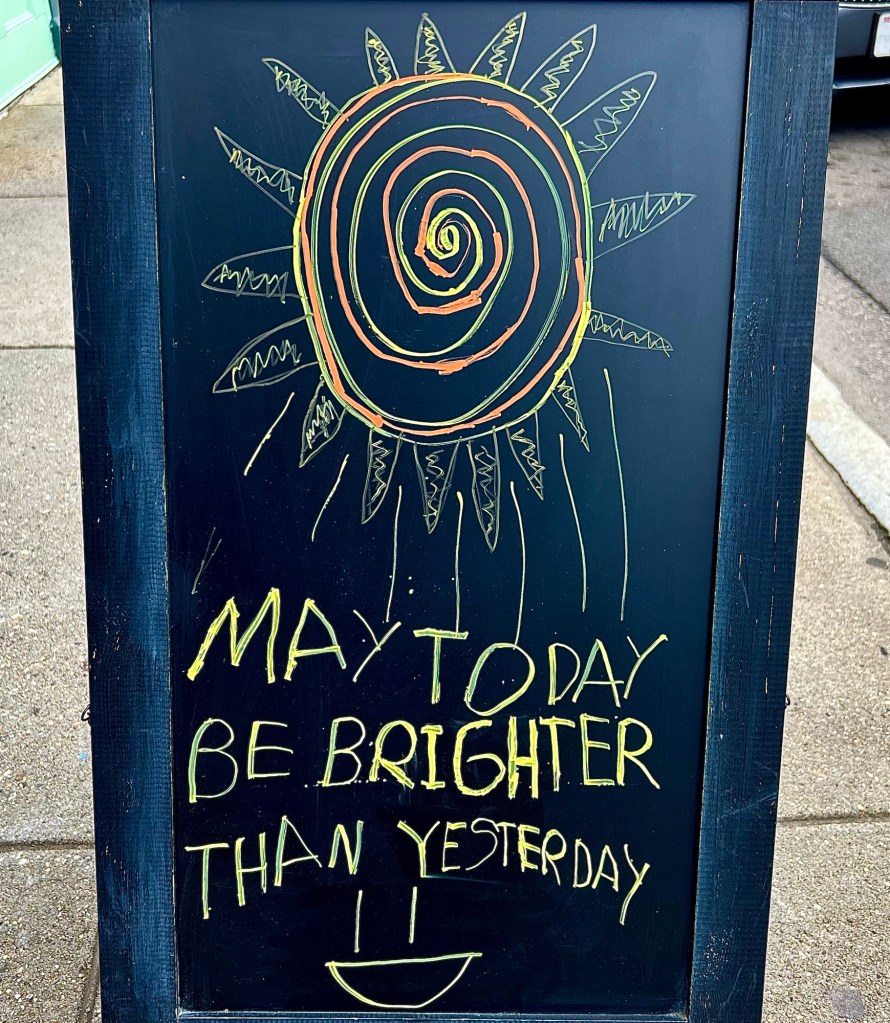 MAY TODAY
BE BRIGHTER
THAN YESTERDAY